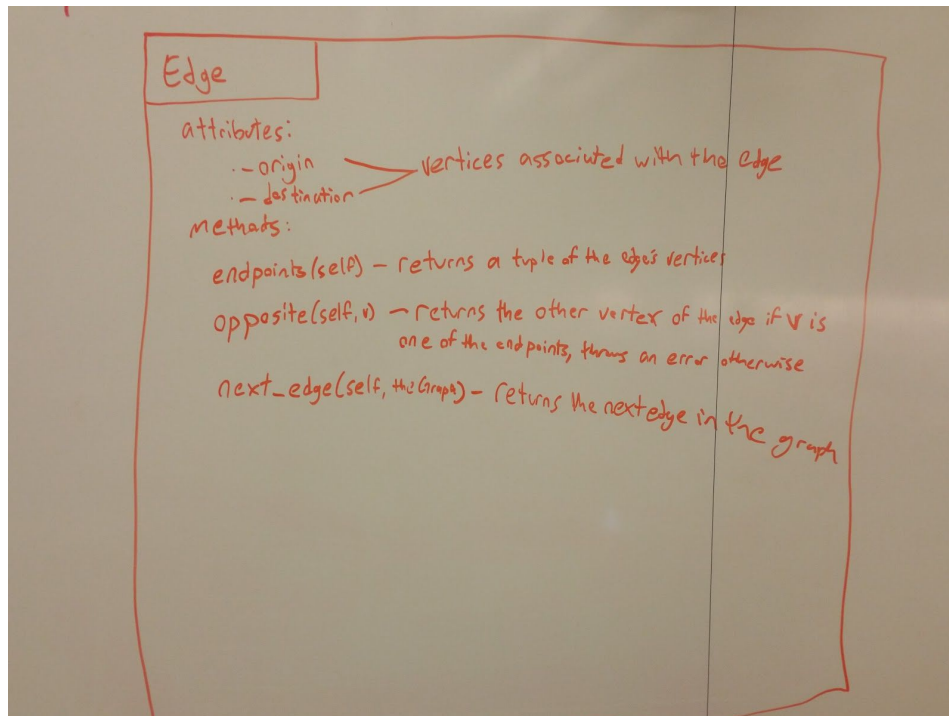 Edge
attributes:
- origin
- destination
vertices associated with the edge
methods:
endpoints(self) - returns a tuple of the edge's vertices
opposite(self, v) - returns the other vertex of the edge if v is
one of the endpoints, throws an error otherwise
next_edge(self, theGraph) - returns the next edge in the graph